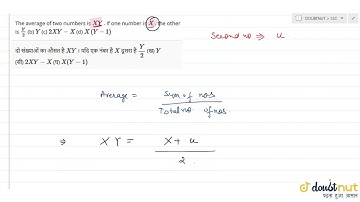 DOUBTNUT > SSC
The average of two numbers is XY. If one number is X, the other
is Y/2 (b) Y (c) 2XY − X (d) X (Y − 1)
Second no ⇒ u
दो संख्याओं का औसत है XY । यदि एक नंबर है X दूसरा है Y/2 (ख) Y
(सी) 2XY − X (घ) X(Y − 1)
Average = Sum of nos
Total no of nos.
⇒ XY = X + u
2
doubtnut